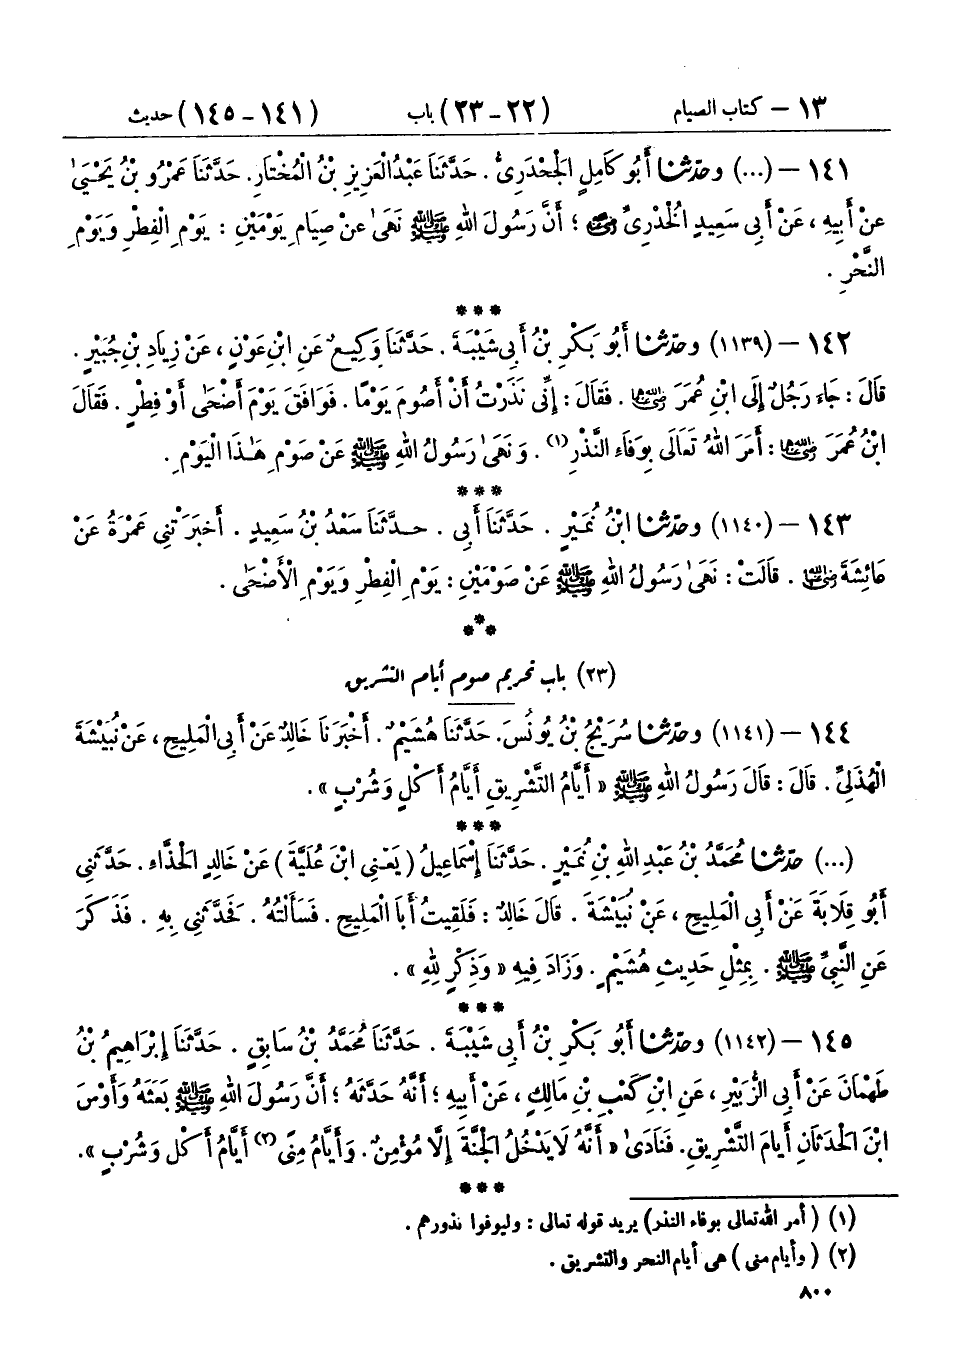 ١٣ – كتاب الصيام (٢٢ - ٢٣) باب (١٤١ - ١٤٥) حديث
١٤١ – (...) وحَدَّثَنَا أَبُو كَامِلٍ الْجَحْدَرِيُّ. حَدَّثَنَا عَبْدُ الْعَزِيزِ بْنُ الْمُخْتَارِ. حَدَّثَنَا عَمْرُو بْنُ يَحْيَىٰ
عَنْ أَبِيهِ، عَنْ أَبِي سَعِيدٍ الْخُدْرِيِّ رضي الله عنه؛ أَنَّ رَسُولَ اللهِ ﷺ نَهَىٰ عَنْ صِيَامِ يَوْمَيْنِ: يَوْمِ الْفِطْرِ وَيَوْمِ
النَّحْرِ.
***
١٤٢ – (١١٣٩) وحَدَّثَنَا أَبُو بَكْرِ بْنُ أَبِي شَيْبَةَ. حَدَّثَنَا وَكِيعٌ عَنِ ابْنِ عَوْنٍ، عَنْ زِيَادِ بْنِ جُبَيْرٍ.
قَالَ: جَاءَ رَجُلٌ إِلَى ابْنِ عُمَرَ رضي الله عنهما. فَقَالَ: إِنِّي نَذَرْتُ أَنْ أَصُومَ يَوْمًا. فَوَافَقَ يَوْمَ أَضْحَىٰ أَوْ فِطْرٍ. فَقَالَ
ابْنُ عُمَرَ رضي الله عنهما: أَمَرَ اللهُ تَعَالَى بِوَفَاءِ النَّذْرِ(١). وَنَهَىٰ رَسُولُ اللهِ ﷺ عَنْ صَوْمِ هَٰذَا الْيَوْمِ.
***
١٤٣ – (١١٤٠) وحَدَّثَنَا ابْنُ نُمَيْرٍ. حَدَّثَنَا أَبِي. حَدَّثَنَا سَعْدُ بْنُ سَعِيدٍ. أَخْبَرَتْنِي عَمْرَةُ عَنْ
عَائِشَةَ رضي الله عنها. قَالَتْ: نَهَىٰ رَسُولُ اللهِ ﷺ عَنْ صَوْمَيْنِ: يَوْمِ الْفِطْرِ وَيَوْمِ الْأَضْحَىٰ.
***
(٢٣) باب تحريم صوم أيام التشريق
١٤٤ – (١١٤١) وحَدَّثَنَا سُرَيْجُ بْنُ يُونُسَ. حَدَّثَنَا هُشَيْمٌ. أَخْبَرَنَا خَالِدٌ عَنْ أَبِي الْمَلِيحِ، عَنْ نُبَيْشَةَ
الْهُذَلِيِّ. قَالَ: قَالَ رَسُولُ اللهِ ﷺ «أَيَّامُ التَّشْرِيقِ أَيَّامُ أَكْلٍ وَشُرْبٍ».
***
(...) حَدَّثَنَا مُحَمَّدُ بْنُ عَبْدِ اللهِ بْنِ نُمَيْرٍ. حَدَّثَنَا إِسْمَاعِيلُ (يَعْنِي ابْنَ عُلَيَّةَ) عَنْ خَالِدٍ الْحَذَّاءِ. حَدَّثَنِي
أَبُو قِلَابَةَ عَنْ أَبِي الْمَلِيحِ، عَنْ نُبَيْشَةَ. قَالَ خَالِدٌ: فَلَقِيتُ أَبَا الْمَلِيحِ. فَسَأَلْتُهُ. فَحَدَّثَنِي بِهِ. فَذَكَرَ
عَنِ النَّبِيِّ ﷺ. بِمِثْلِ حَدِيثِ هُشَيْمٍ. وَزَادَ فِيهِ «وَذِكْرٍ لِلهِ».
***
١٤٥ – (١١٤٢) وحَدَّثَنَا أَبُو بَكْرِ بْنُ أَبِي شَيْبَةَ. حَدَّثَنَا مُحَمَّدُ بْنُ سَابِقٍ. حَدَّثَنَا إِبْرَاهِيمُ بْنُ
طَهْمَانَ عَنْ أَبِي الزُّبَيْرِ، عَنِ ابْنِ كَعْبِ بْنِ مَالِكٍ، عَنْ أَبِيهِ؛ أَنَّهُ حَدَّثَهُ؛ أَنَّ رَسُولَ اللهِ ﷺ بَعَثَهُ وَأَوْسَ
ابْنَ الْحَدَثَانِ أَيَّامَ التَّشْرِيقِ. فَنَادَىٰ «أَنَّهُ لَا يَدْخُلُ الْجَنَّةَ إِلَّا مُؤْمِنٌ. وَأَيَّامُ مِنًى(٢) أَيَّامُ أَكْلٍ وَشُرْبٍ».
***
(١) (أمر الله تعالى بوفاء النذر) يريد قوله تعالى: وليوفوا نذورهم.
(٢) (وأيام منى) هي أيام النحر والتشريق.
٨٠٠